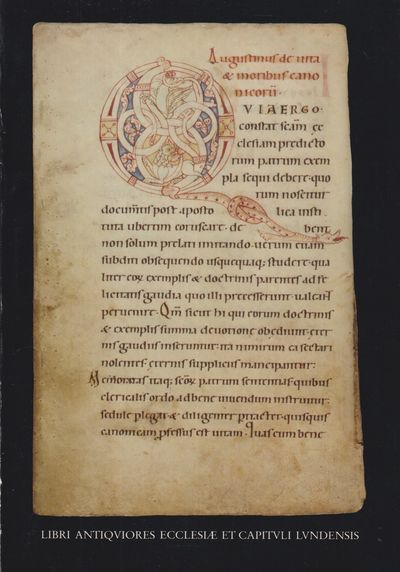 Augustinus de uita
& moribus cano
nicorū·
VIA ERGO·
constat scām ec
clesiam predicto
rum patrum exem
pla sequi debere· quo
rum noscitur
documtis post aposto lica insti
tuta ubertim coruscare· debent
non solum prelati imitando· uerum etiam
subditi obsequendo usquequaq; studere· qua
liter eoȝ exemplis & doctrinis parentes ad fe
licitatis gaudia quo illi precesserunt ualeant
peruenire· Qm̄ sicut hi qui eorum doctrinis
& exemplis summa deuotione obediunt· eter
nis gaudiis inseruntur· ita nimirum ea sectari
nolentes· eternis suppliciis mancipantur:
Memoratas itaq; scōȝ patrum sententias· quibus
clericalis ordo ad bene uiuendum instruitur:
sedule plegat & diligenter practet· quisquis
canonicam pfessus est uitam· Quas cum bene
LIBRI ANTIQVIORES ECCLESIÆ ET CAPITVLI LVNDENSIS